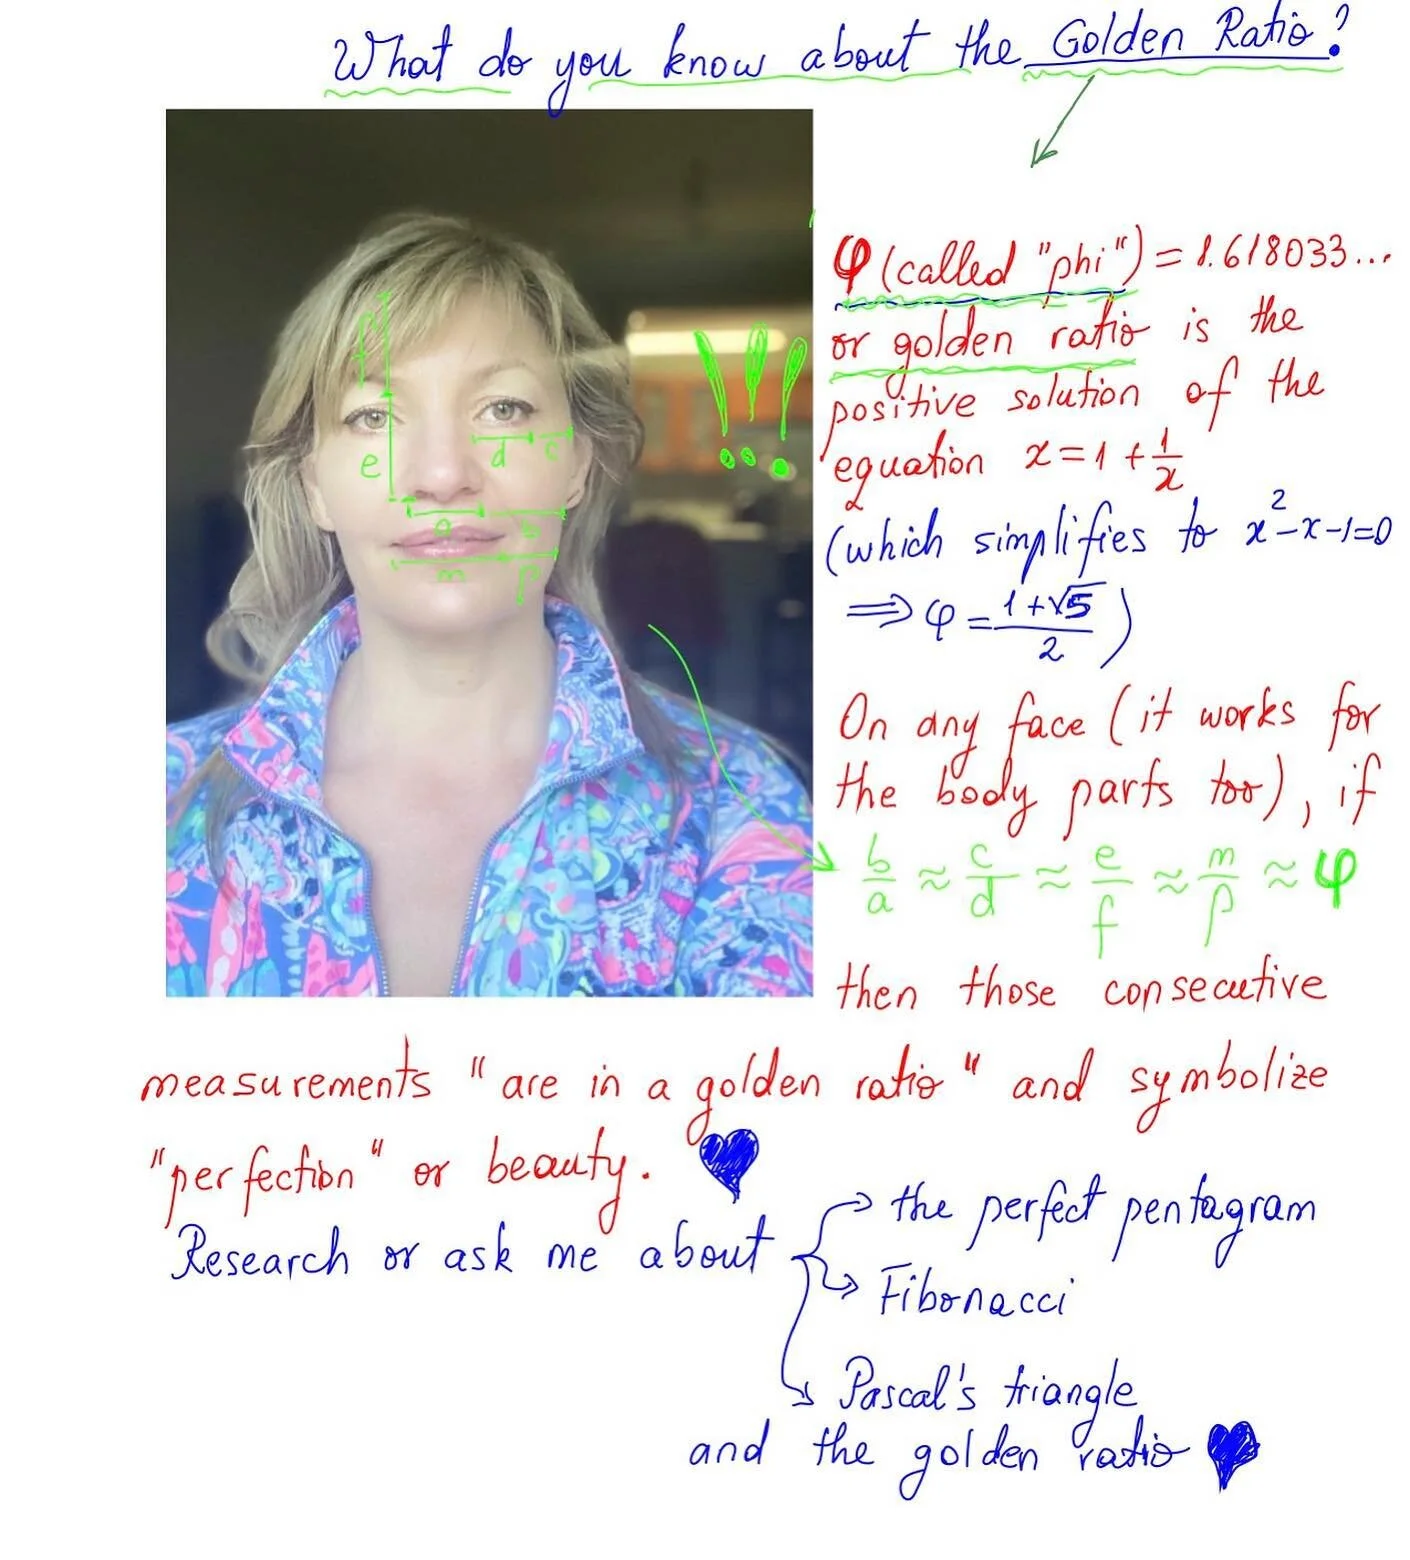 What do you know about the Golden Ratio?
φ (called "phi") = 1.618033...
or golden ratio is the
positive solution of the
equation x = 1 + 1/x
(which simplifies to x² - x - 1 = 0
⟹ φ = (1 + √5)/2 )
On any face (it works for
the body parts too), if
b/a ≈ c/d ≈ e/f ≈ m/p ≈ φ
then those consecutive
measurements "are in a golden ratio" and symbolize
"perfection" or beauty.
Research or ask me about
the perfect pentagram
Fibonacci
Pascal's triangle
and the golden ratio
f
e
d c
a b
m p
!!!